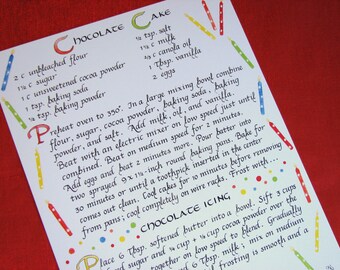 Chocolate Cake
2 c unbleached flour
1 ¾ c sugar
1 c unsweetened cocoa powder
1 tsp. baking soda
½ tsp. baking powder
¼ tsp. salt
1 ¼ c milk
¾ c canola oil
1 tsp. vanilla
2 eggs
Preheat oven to 350°. In a large mixing bowl combine
flour, sugar, cocoa powder, baking soda, baking
powder, and salt. Add milk, oil, and vanilla.
Beat with an electric mixer on low speed just until
combined. Beat on medium speed for 2 minutes.
Add eggs and beat 2 minutes more. Pour batter into
two sprayed 9 x 1½-inch round baking pans. Bake for
30 minutes or until a toothpick inserted in the center
comes out clean. Cool cakes for 10 minutes before removing
from pans; cool completely on wire racks. Frost with...
CHOCOLATE ICING
Place 6 Tbsp. softened butter into a bowl. Sift 3 cups
sugar and ¼ cup cocoa powder over the
together on low speed to blend. Gradually
6 Tbsp. milk; mix on medium
frosting is smooth and a